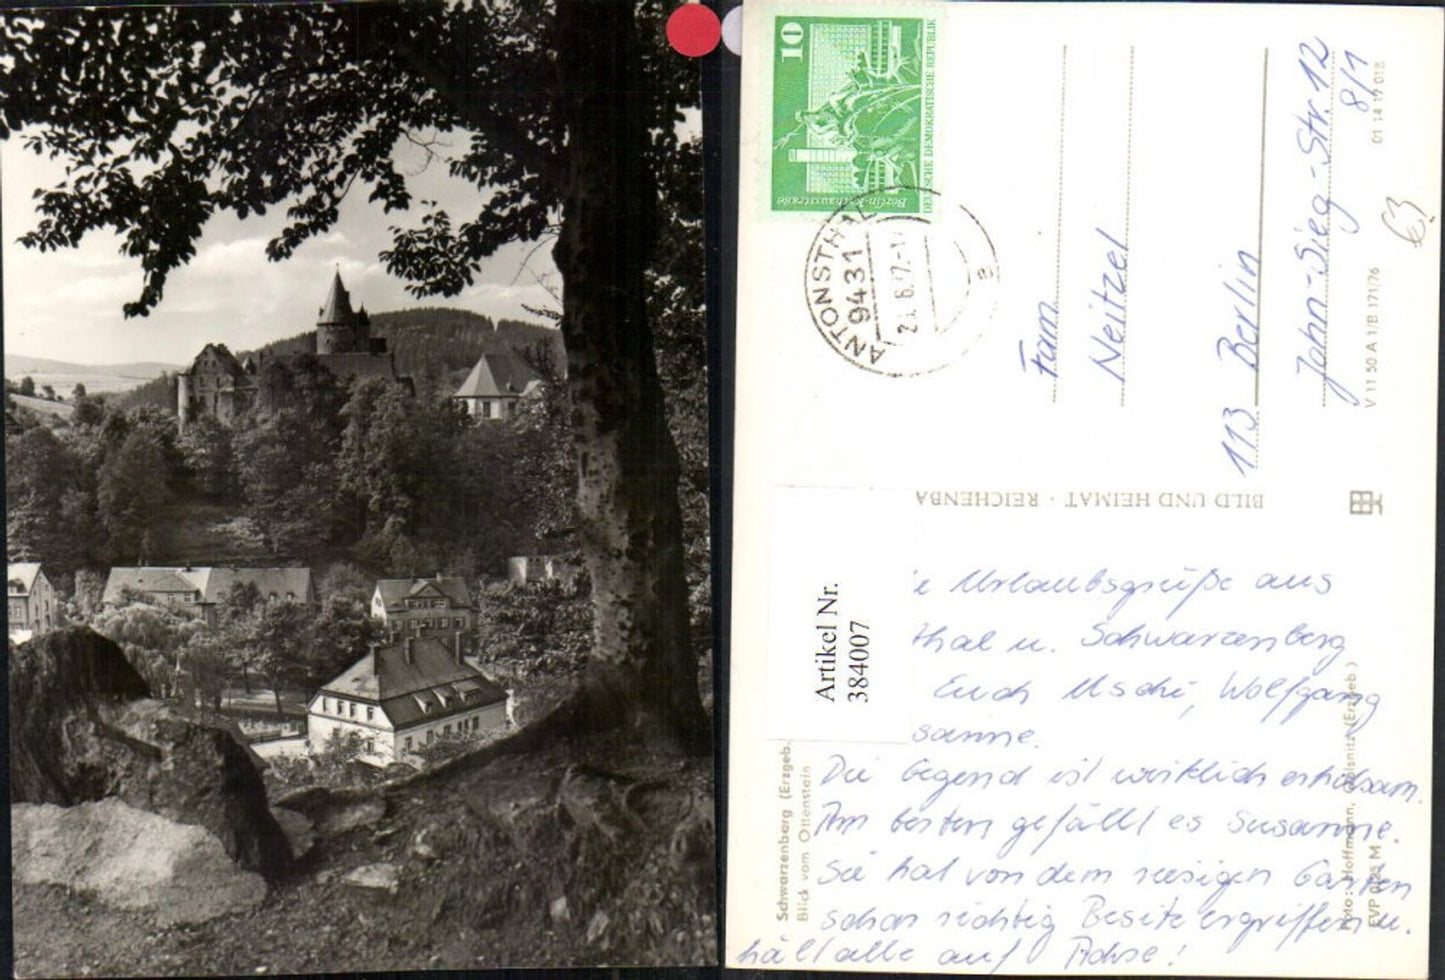 10
Berlin-Rathausstraße
DEUTSCHE DEMOKRATISCHE REPUBLIK
ANTONSTHAL
9431
Fam.
Neitzel
113 Berlin
Jahn-Sieg-Str. 12
8/1
63
V 11 50 A 1/B 171/76
01 14 17 018
BILD UND HEIMAT · REICHENBA
Artikel Nr.
384007
e Urlaubsgrüße aus
thal u. Schwarzenberg
Euch Uschi, Wolfgang
sanne.
Die Gegend ist wirklich erholsam.
Am besten gefällt es Susanne.
Sie hat von dem riesigen Garten
schon richtig Besitz ergriffen u.
hält alle auf Achse!
Schwarzenberg (Erzgeb.
Blick vom Ottenstein
Foto: Hoffmann, Oelsnitz (Erzgeb.)
EVP 0,25 M